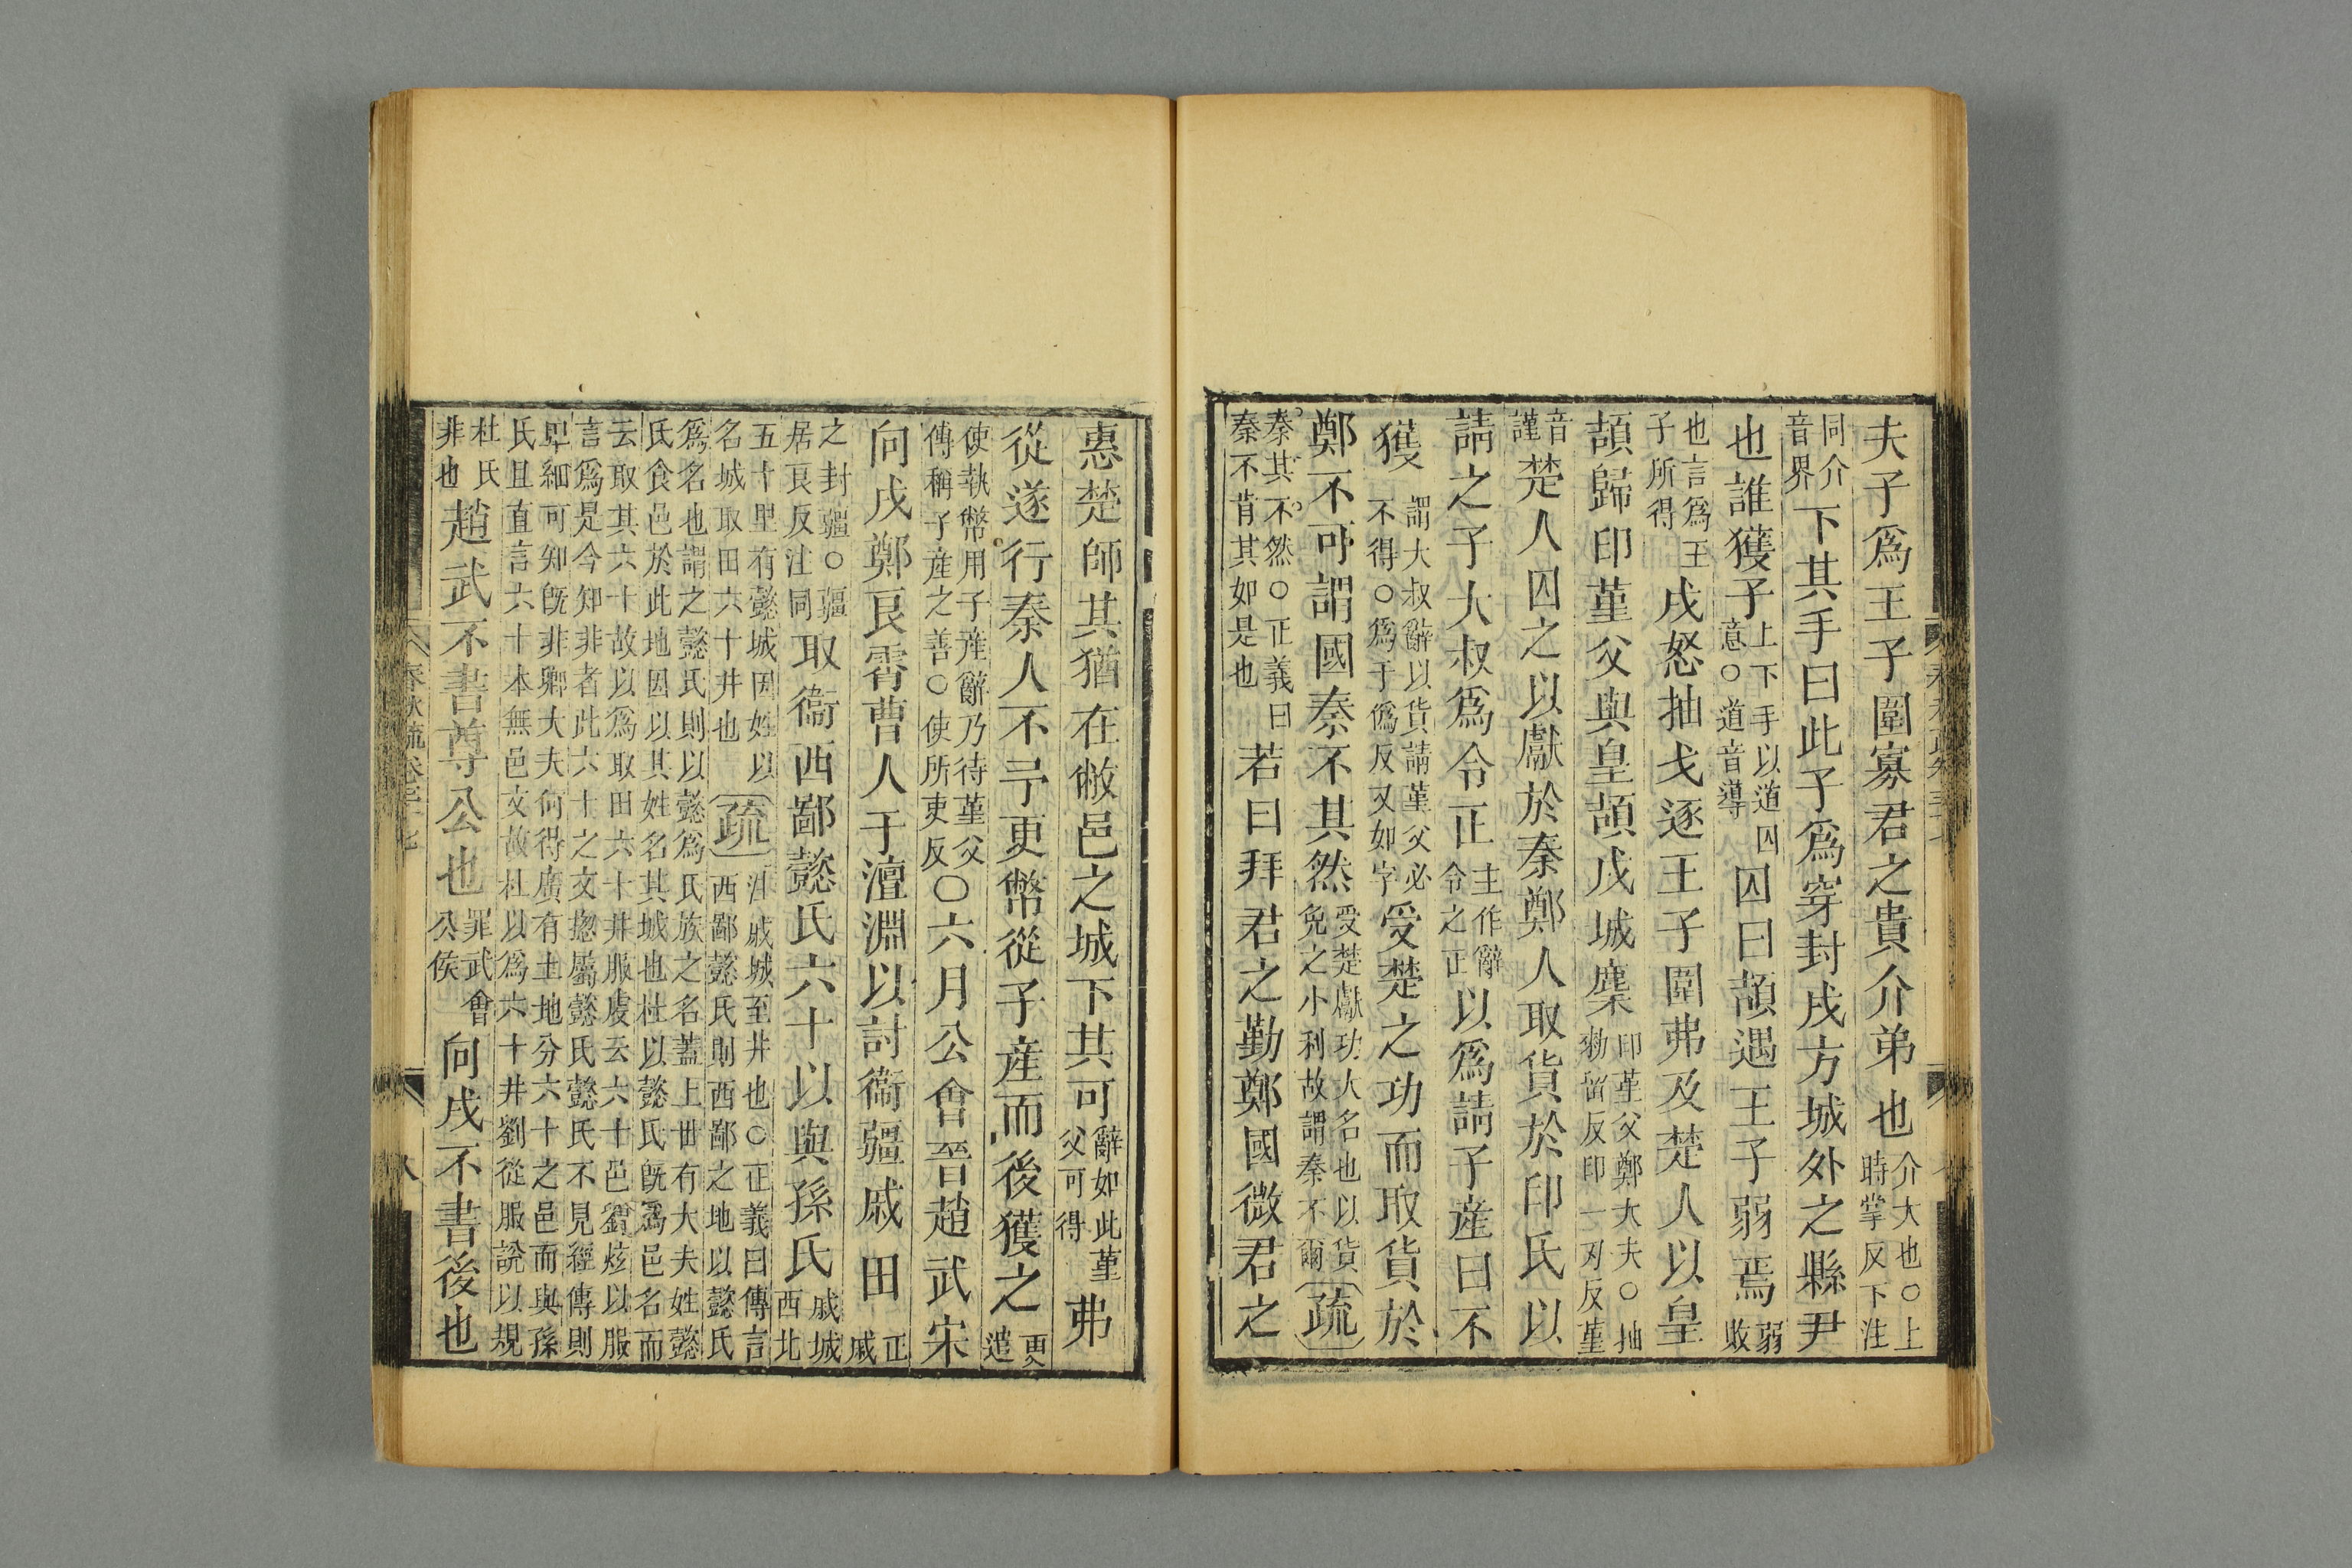 夫子爲王子圍寡君之貴介弟也介大也○上時掌反下注
同介音界下其手曰此子爲穿封戌方城外之縣尹
也誰獲子上下手以道囚意○道音導囚曰頡遇王子弱焉弱敗
也言爲王子所得戌怒抽戈逐王子圍弗及楚人以皇
頡歸印堇父與皇頡戌城麇印堇父鄭大夫○抽勑留反印一刃反堇
音謹楚人囚之以獻於秦鄭人取貨於印氏以
請之子大叔爲令正主作辭令之正以爲請子産曰不
獲謂大叔辭以貨請堇父必不得○爲于僞反又如字受楚之功而取貨於
鄭不可謂國秦不其然受楚獻功大名也以貨免之小利故謂秦不爾疏
秦其不然○正義曰秦不肯其如是也若曰拜君之勤鄭國微君之
惠楚師其猶在敝邑之城下其可辭如此堇父可得弗
從遂行秦人不予更幣從子産而後獲之更遣
使執幣用子産辭乃待堇父傳稱子産之善○使所吏反○六月公會晉趙武宋
向戌鄭良霄曹人于澶淵以討衞疆戚田正戚
之封疆○疆居良反注同取衞西鄙懿氏六十以與孫氏戚城西北
五十里有懿城因姓以名城取田六十井也疏注戚城至井也○正義曰傳言西鄙懿氏則西鄙之地以懿氏
爲名也謂之懿氏則以懿爲氏族之名蓋上世有大夫姓懿氏食邑於此地因以其姓名其城也杜以懿氏旣爲邑名而
云取其六十故以爲取田六十井服虔云六十邑劉炫以服言爲是今知非者此六十之文揔屬懿氏懿氏不見經傳則
卑細可知旣非卿大夫何得廣有土地分六十之邑而與孫氏且直言六十本無邑文故杜以爲六十井劉從服說以規
杜氏非也趙武不書尊公也罪武會公侯向戌不書後也
八